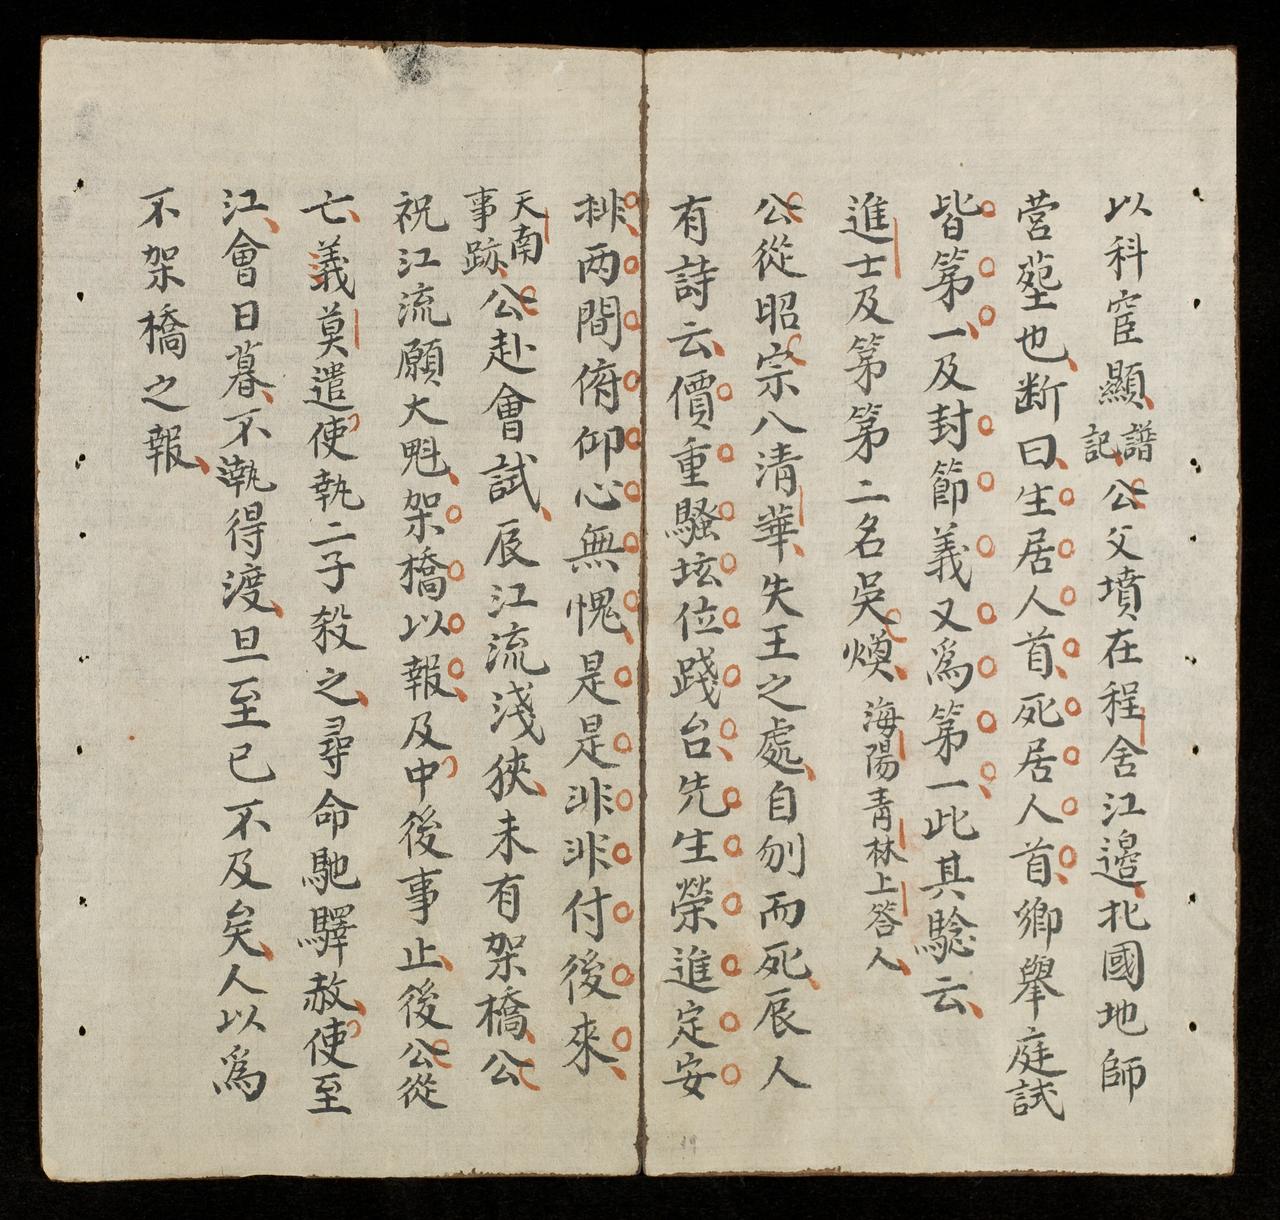 以科宦顯譜記公父墳在程舍江邊北國地師
営塟也断曰生居人首死居人首鄉舉庭試
皆第一及封節義又爲第一此其騐云
進士及第第二名吳煥海陽青林上答人
公從昭宗八清華失王之處自刎而死辰人
有詩云價重騷坛位踐台先生榮進定安
排两間俯仰心無愧是是非非付後來
天南事跡公赴會試辰江流淺狹未有架橋公
祝江流願大魁架橋以報及中後事止後公從
亡義莫遣使執二子殺之尋命馳驛赦使至
江會日暮不得渡旦至已不及矣人以爲
不架橋之報